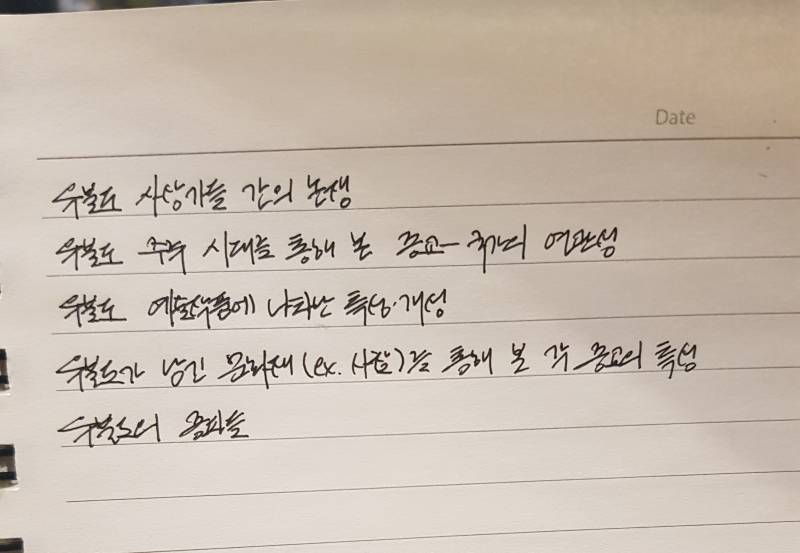 Date
유불도 사상가들 간의 논쟁
유불도 주류 시대를 통해 본 종교-국가의 연관성
유불도 예술작품에 나타난 특성·개성
유불도가 남긴 문화재(ex. 사찰)를 통해 본 각 종교의 특성
유불도의 종파들